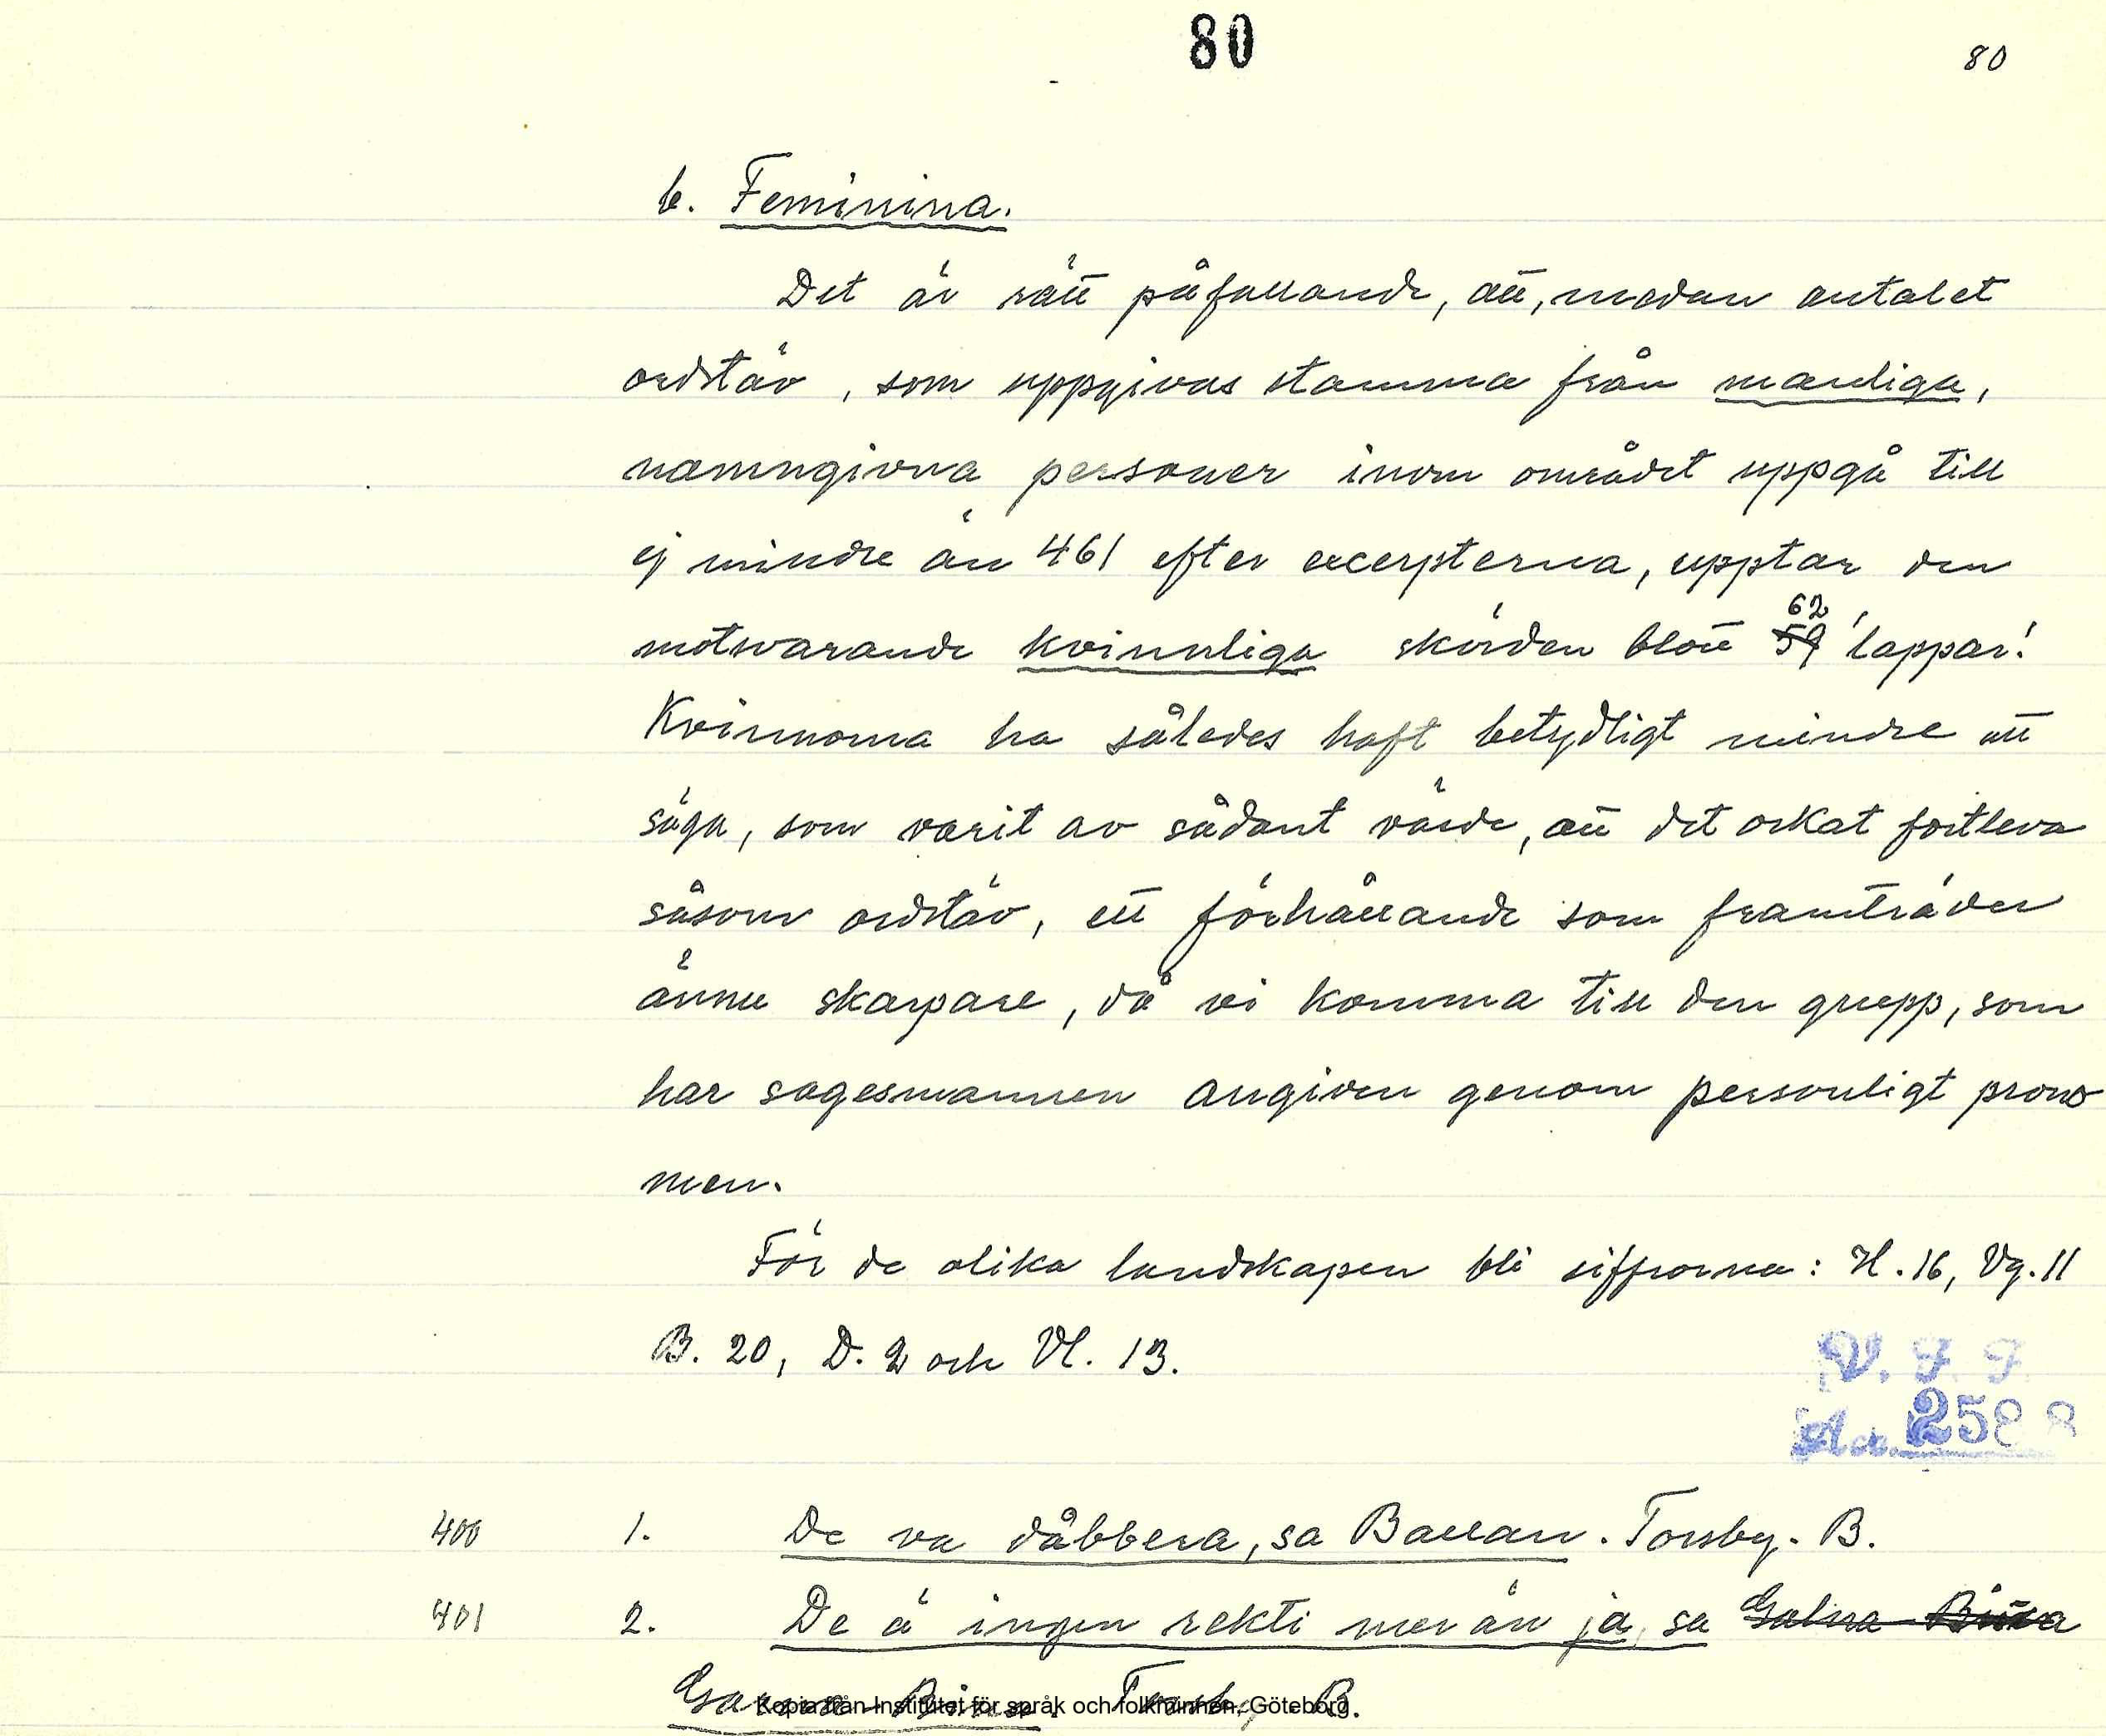 80
80
b. Feminina.
Det är rätt påfallande, att, medan antalet
ordstäv, som uppgivas stamma från manliga,
namngivna personer inom området uppgå till
ej mindre än 461 efter excerpterna, upptar den
62
motsvarande kvinnliga skörden blott 59 'lappar'.
Kvinnorna ha således haft betydligt mindre att
säga, som varit av sådant värde, att det orkat fortleva
såsom ordstäv, ett förhållande som framträder
ännu skarpare, då vi komma till den grupp, som
har sagesmannen angiven genom personligt prono
men.
För de olika landskapen bli siffrorna: H. 16, Vg. 11
B. 20, D. 2 och Vl. 13.
V. F. F.
Acc. 2588
400 1. De va dåbbera, sa Ballan. Torsby. B.
401 2. De ä ingen rekti mer än ja, sa Galna
Torsby. B.
Kopia från Institutet för språk och folkminnen, Göteborg.